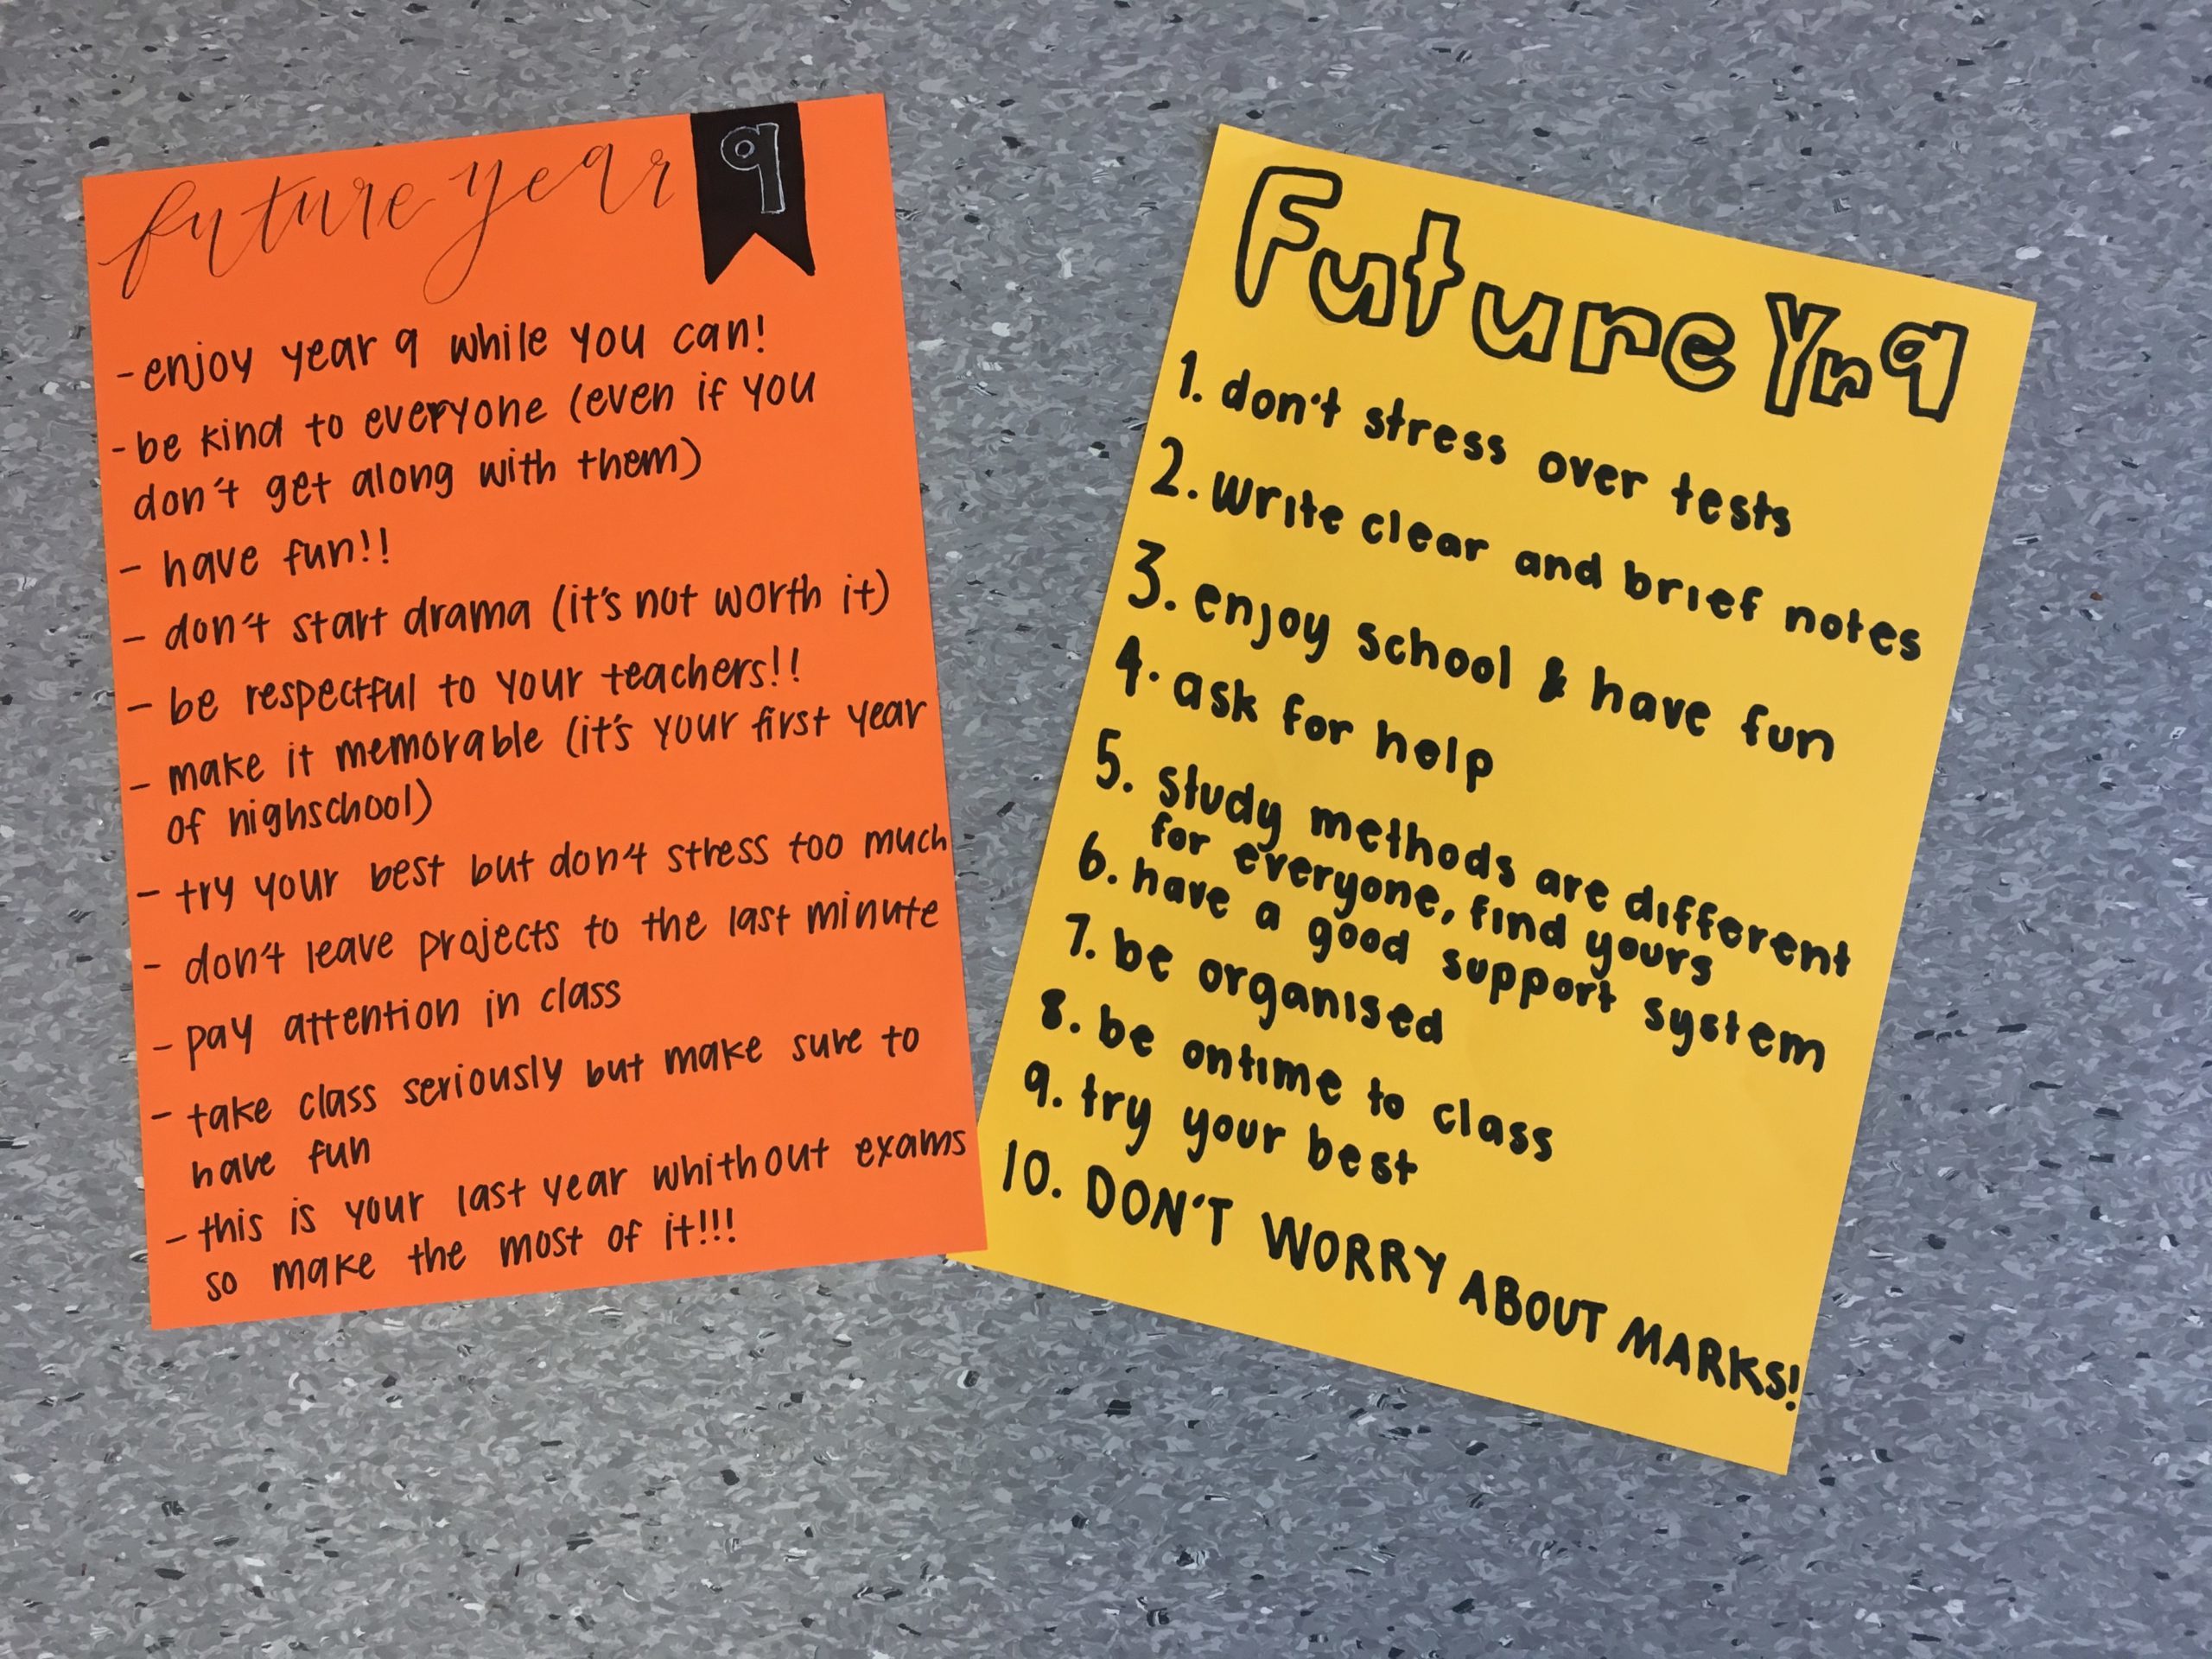 future year 9
- enjoy year 9 while you can!
- be kind to everyone (even if you
don't get along with them)
- have fun!!
- don't start drama (it's not worth it)
- be respectful to your teachers!!
- make it memorable (it's your first year
of highschool)
- try your best but don't stress too much
- don't leave projects to the last minute
- pay attention in class
- take class seriously but make sure to
have fun
- this is your last year whithout exams
so make the most of it!!!
Future Yr 9
1. don't stress over tests
2. write clear and brief notes
3. enjoy school & have fun
4. ask for help
5. study methods are different
for everyone, find yours
6. have a good support system
7. be organised
8. be ontime to class
9. try your best
10. DON'T WORRY ABOUT MARKS!